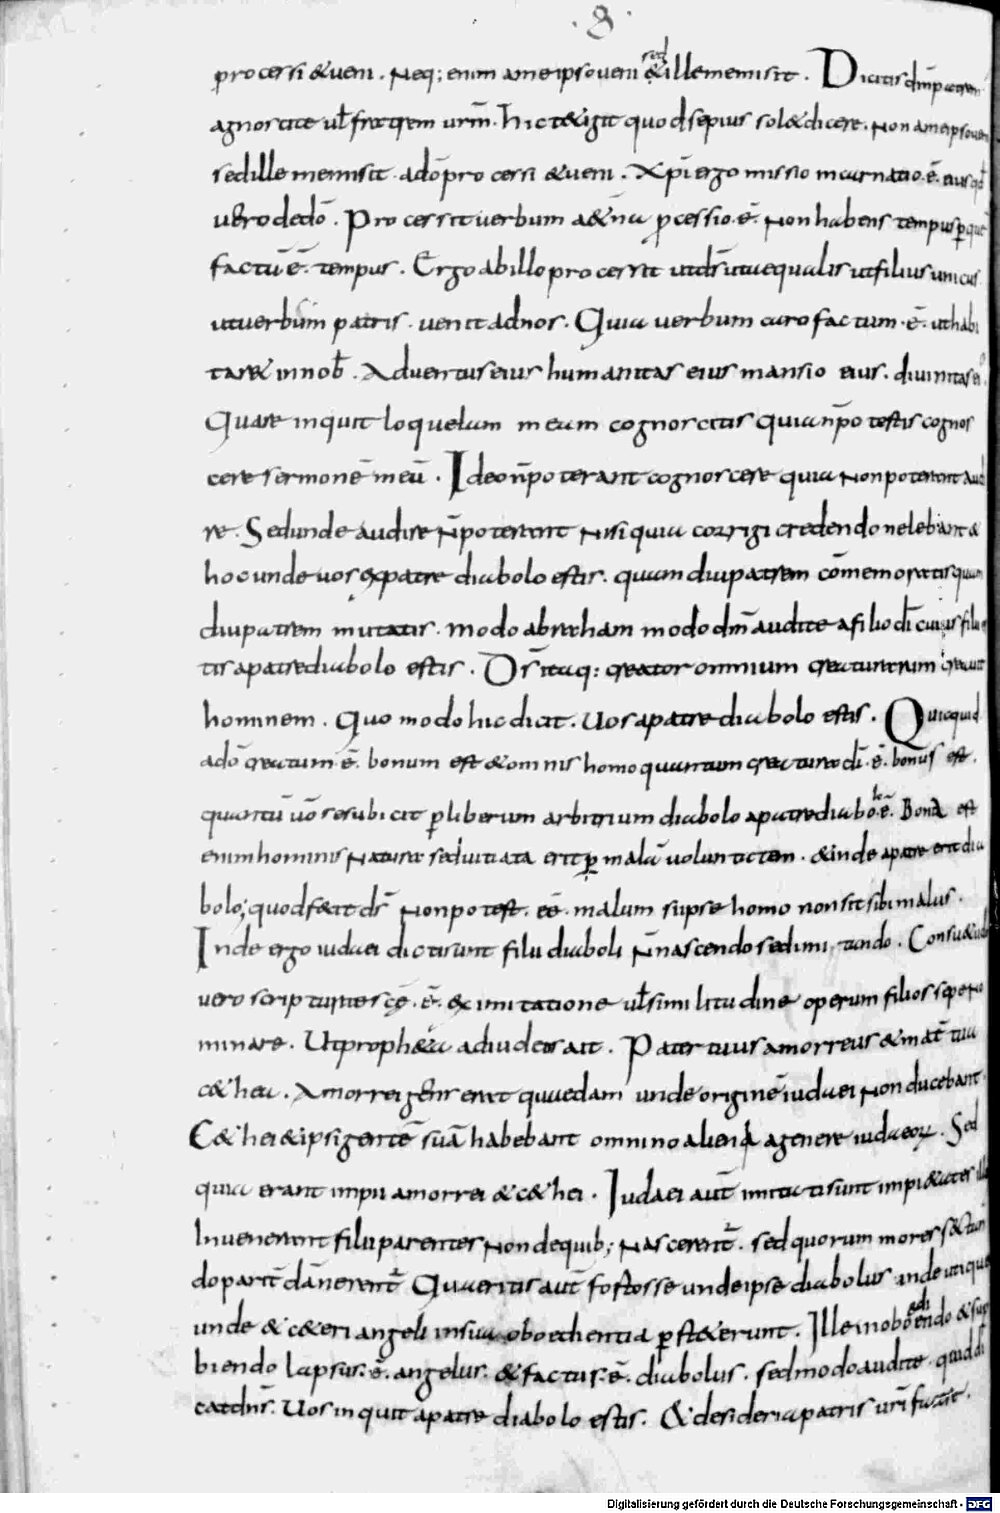 ·8·
processi & veni. Neq; enim a me ipso veni sed & ille me misit. Dicitis dm̄ patrem
agnoscite ul̄ fratrem urm̄. hic tetigit quod sepius sol& dicere. Non a me ipso ueni
sed ille me misit. a dō processi & ueni. Xpī ergo missio incarnatio. ē. eius qd̄
uero de dō. Processit uerbum a&erna processio. ē. Non habens tempus p quē
factū ē. tempus. Ergo ab illo processit ut ds̄ ut aequalis ut filius unicus
ut uerbum patris. uenit ad nos. Quia uerbum caro factum. ē. ut habi
tar& in nob̄. Aduentus eius humanitas eius mansio eius. diuinitas ei
Quare inquit loquelam meam cognoscitis quia n̄ potestis cognos
cere sermonē meū. Ideo n̄ poterant cognoscere quia Non poterant audi
re. Sed unde audire n̄ poterant Nisi quia corrigi credendo nolebant &
hoc unde uos ex patre diabolo estis. quam diu patrem cōmemoratis quam
diu patrem mutatis. modo abraham modo dm̄ audite a filio dī cuius filii
tis a patre diabolo estis. Ds̄ itaq: creator omnium creaturarum creauit
hominem. Quomodo hic dicit. Uos a patre diabolo estis. Quicquid
a dō creatum ē. bonum est & omnis homo quantum creatura dī. ē. bonus est.
quantū ūo se subicit p liberum arbitrium diabolo a patre diabolo. ē. Bona est
enim hominis Natura sed uitiata erat p malā uoluntatem. & inde a patre erit dia
bolo; quod fecit ds̄ Non potest. eē. malum si ipse homo non sit sibi malus.
Inde ergo iudaei dicti sunt filii diaboli n̄ nascendo sed imitando. Consu&udo
uero scripturae scē. ē. ex imitatione ul̄ similitudine operum filios sepe no
minare. Ut proph&a ad iudeos ait. Pater tuus amorreus & mat̄ tua
c&hea. Amorrei gens erat quaedam unde originē iudaei Non ducebant.
C&hei & ipsi gentē suā habebant omnino aliena a genere iudaeoꝝ. Sed
quia erant impii amorrei & c&hei. Iudaei aut̄ imitati sunt impi&ates illorum
Inuenerunt filii parentes Non de quib; Nascerent̄. sed quorum mores sectan
do parit̄ dānerent̄ Quaeritis aut̄ fortasse unde ipse diabolus inde utique
unde & c&eri angeli in sua oboedientia p stiterunt. Ille inoboediendo & sup
biendo lapsus. ē. angelus. & factus. ē. diabolus. sed modo audite quid di
cat dn̄s. Uos inquit a patre diabolo estis. & desideria patris urī facitis.
Digitalisierung gefördert durch die Deutsche Forschungsgemeinschaft - DFG